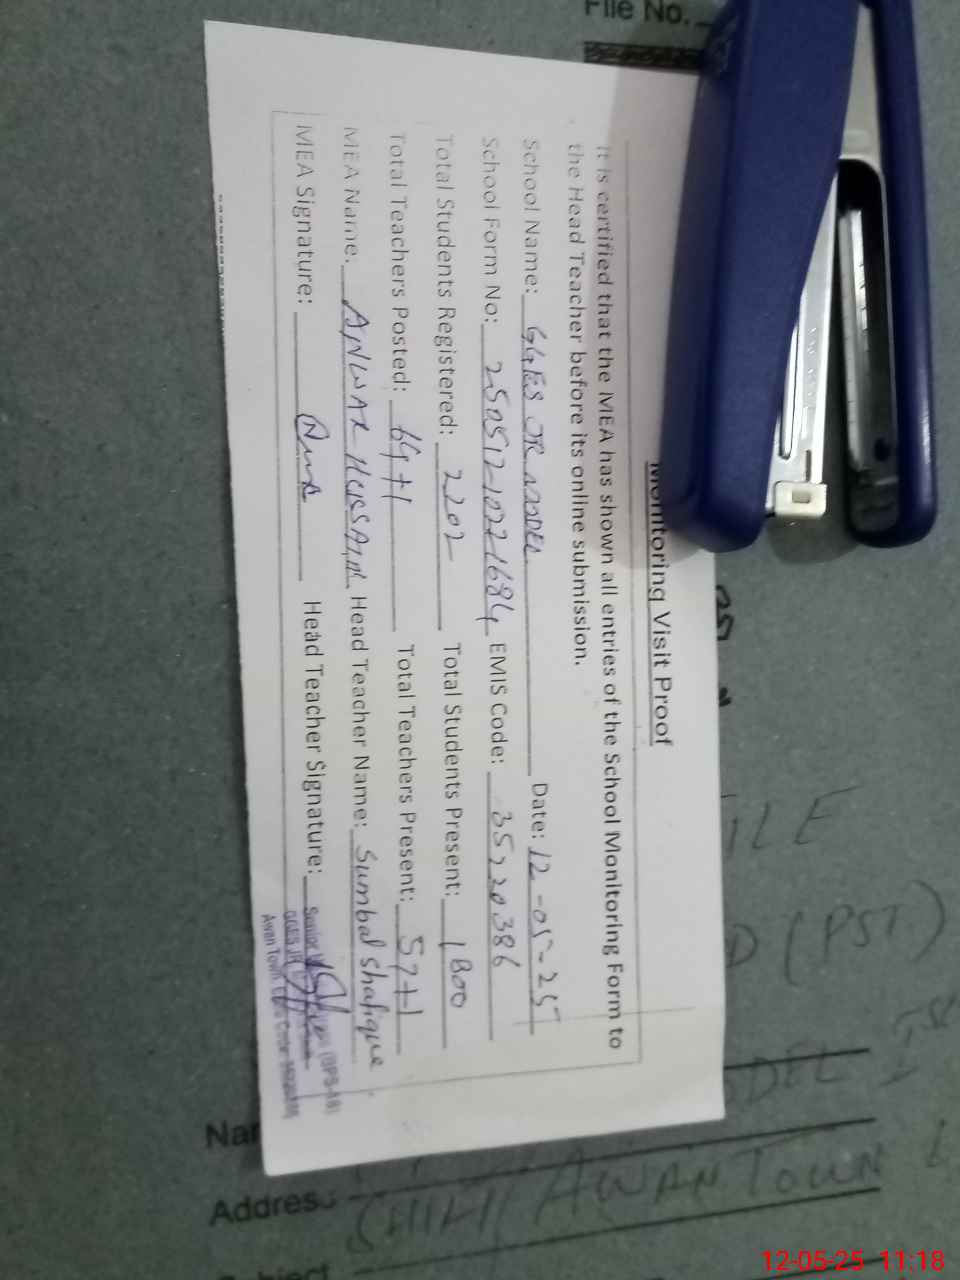 File No.
Monitoring Visit Proof
It is certified that the MEA has shown all entries of the School Monitoring Form to
the Head Teacher before its online submission.
School Name: GGES JR MODEL Date: 12-05-25
School Form No: 250512-1022-1684 EMIS Code: 35220386
Total Students Registered: 2202 Total Students Present: 1800
Total Teachers Posted: 64+1 Total Teachers Present: 57+1
MEA Name: ANWAR HUSSAIN Head Teacher Name: Sumbal Shafique
MEA Signature: Head Teacher Signature:
Senior (BPS-18)
GGES JR
Awan Town
(PST)
Address AWAN TOWN
12-05-25 11:18